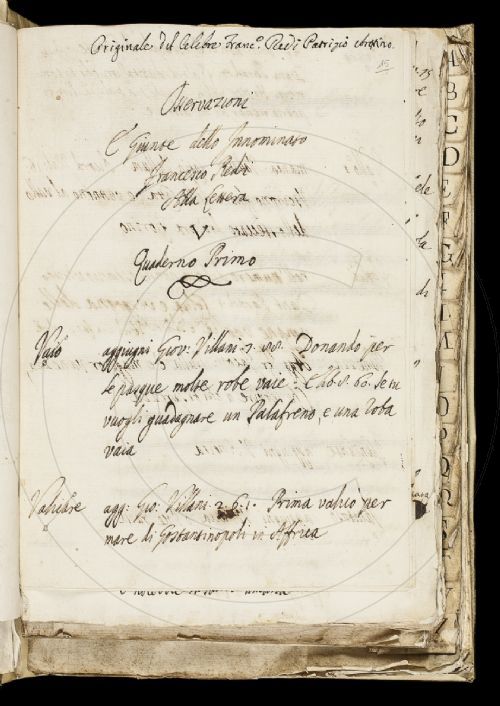 Originale del Celebre Franc.º Redi Patrizio Aretino.
15
Osservazioni
E Giunte dello Innominato
Francesco Redi
Alla Lettera
V
Quaderno Primo
Vaio aggiugni Giov: Villani. 7. 88. Donando per
le pasque molte robe vaie. E lib. 8. 60. Se tu
vuogli guadagnare un Palafreno, e una roba
vaia
Valicare agg: Gio: Villani. 2. 6. 1. Prima valicò per
mare di Gostantinopoli in Affrica
A
B
C
D
E
F
G
I
L
M
O
P
Q
R
S
V